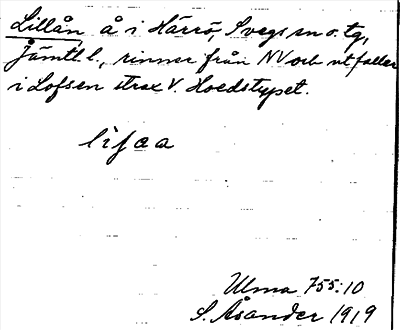 Lillån å i Härrö, Svegs sn o. tg,
Jämtl. l., rinner från NV och utfaller
i Lofsen strax V. Hoedstypet.
lifaa
Ulma 755:10
S. Åsander 1919